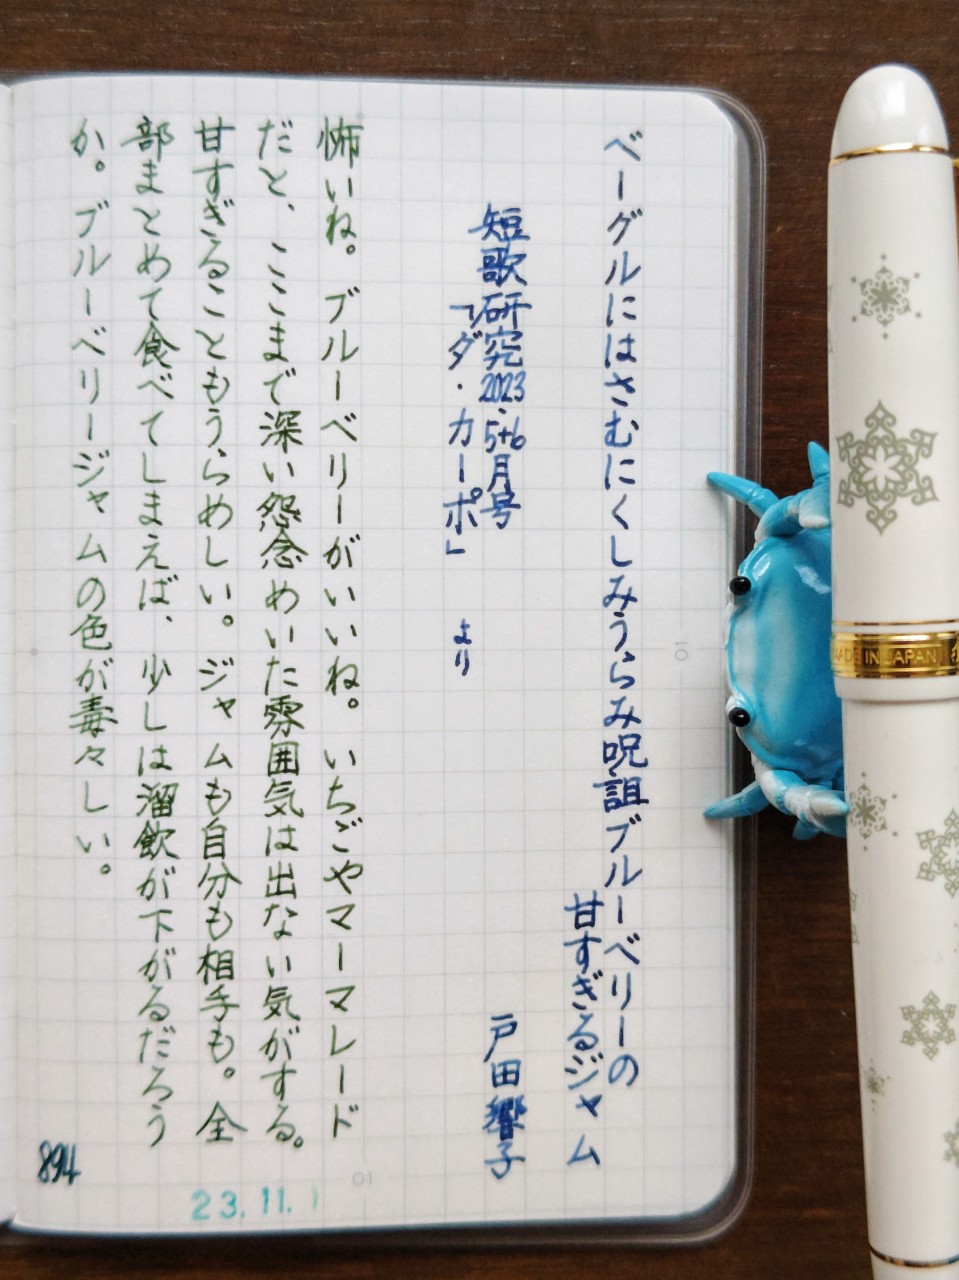 ベーグルにはさむにくしみうらみ呪詛ブルーベリーの
甘すぎるジャム
短歌研究2023.5+6月号
「ダ・カーポ」 より
戸田響子
怖いね。ブルーベリーがいいね。いちごやマーマレード
だと、ここまで深い怨念めいた雰囲気は出ない気がする。
甘すぎることもうらめしい。ジャムも自分も相手も。全
部まとめて食べてしまえば、少しは溜飲が下がるだろう
か。ブルーベリージャムの色が毒々しい。
894
23.11.1
10
10
MADE IN JAPAN